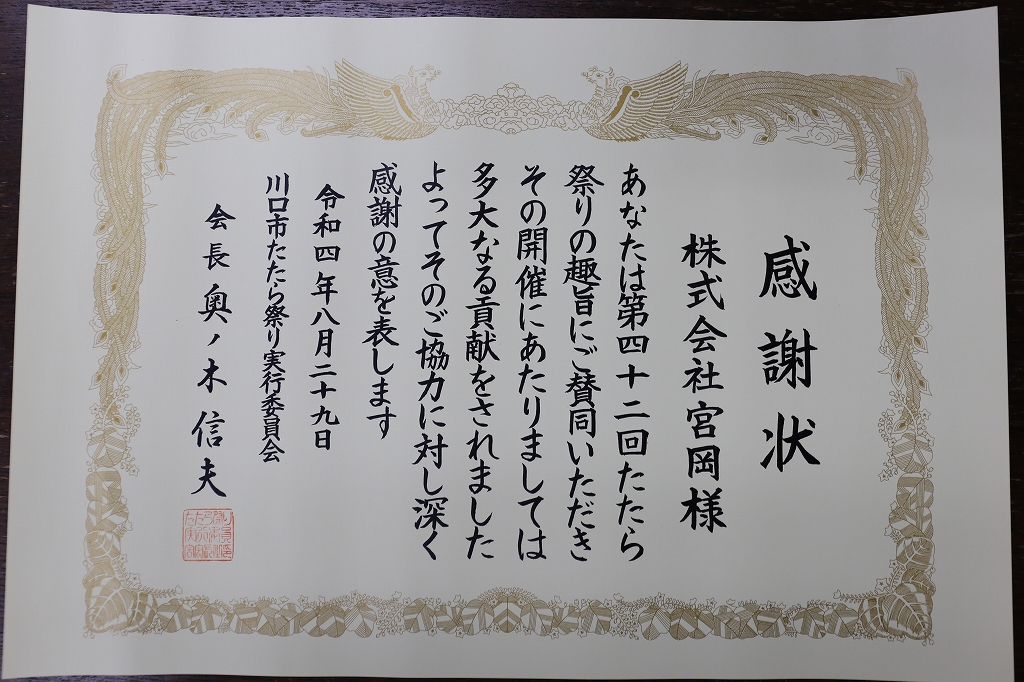 感謝状
株式会社宮岡様
あなたは第四十二回たたら
祭りの趣旨にご賛同いただき
その開催にあたりましては
多大なる貢献をされました
よってそのご協力に対し深く
感謝の意を表します
令和四年八月二十九日
川口市たたら祭り実行委員会
会長奥ノ木信夫